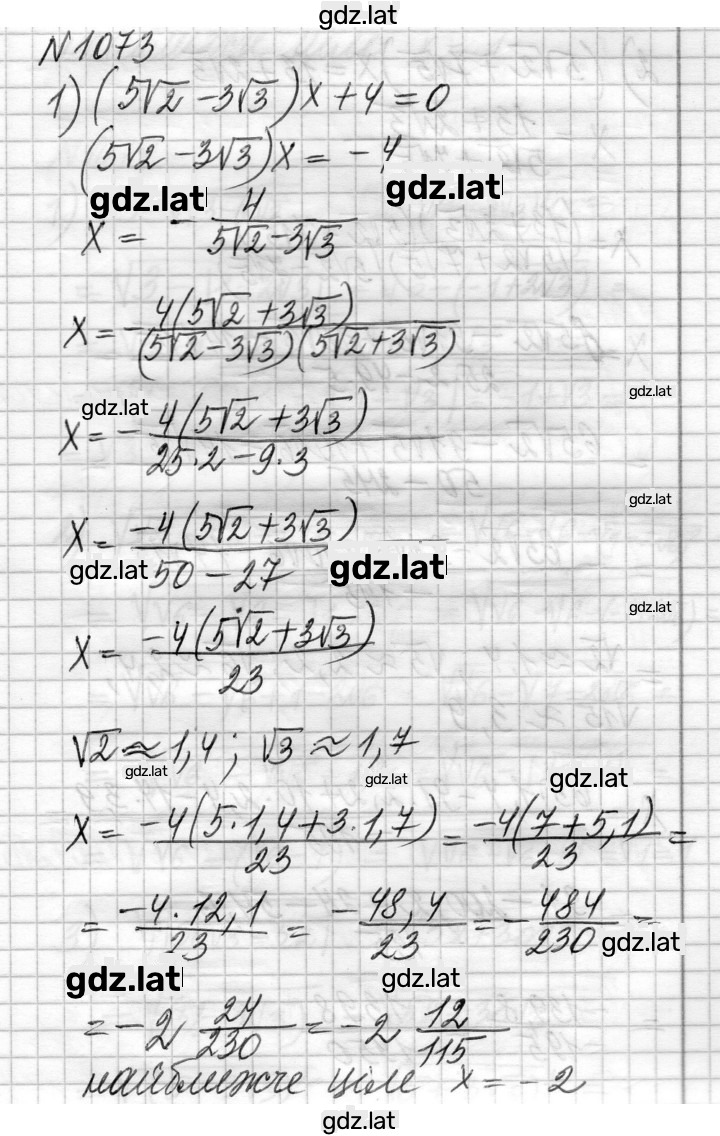 gdz.lat
N1073
1) (5√2 - 3√3)x + 4 = 0
(5√2 - 3√3)x = - 4
gdz.lat gdz.lat
x = - 4/(5√2 - 3√3)
x = - 4(5√2 + 3√3)/((5√2 - 3√3)(5√2 + 3√3))
gdz.lat
gdz.lat
x = - 4(5√2 + 3√3)/(25·2 - 9·3)
gdz.lat
x = -4(5√2 + 3√3)/(50 - 27)
gdz.lat gdz.lat
gdz.lat
x = -4(5√2 + 3√3)/23
√2 ≈ 1,4; √3 ≈ 1,7
gdz.lat gdz.lat gdz.lat
x = -4(5·1,4 + 3·1,7)/23 = -4(7 + 5,1)/23 =
= -4·12,1/23 = -48,4/23 = -484/230 =
gdz.lat
gdz.lat gdz.lat
= -2 24/230 = -2 12/115
найближче ціле x = - 2
gdz.lat